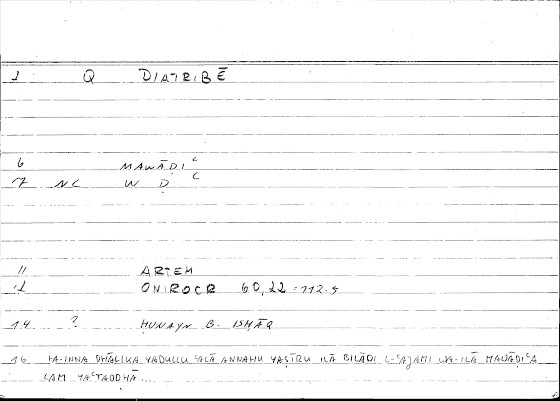 1 Q DIATRIBĒ
6 MAWĀḌIᶜ
7 NC W Ḍ ᶜ
11 ARTEM
12 ONIROCR 60,22 = 112.5
14 ? ḤUNAYN B. ISḤĀQ
16 FA-INNA DHĀLIKA YADULLU ᶜALĀ ANNAHU ILĀ BILĀDI L-ᶜAJAMI WA-ILĀ MAWĀḌIᶜA
LAM